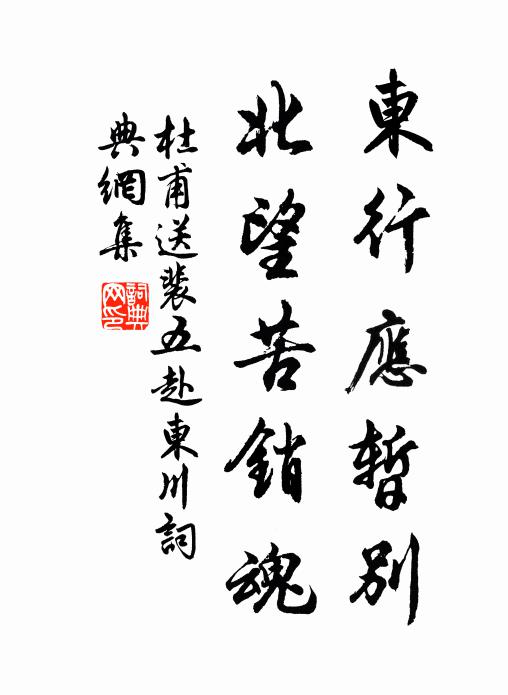 東行應暫別
北望苦銷魂
杜甫送裴五赴東川詞
典網集
詞典
网印